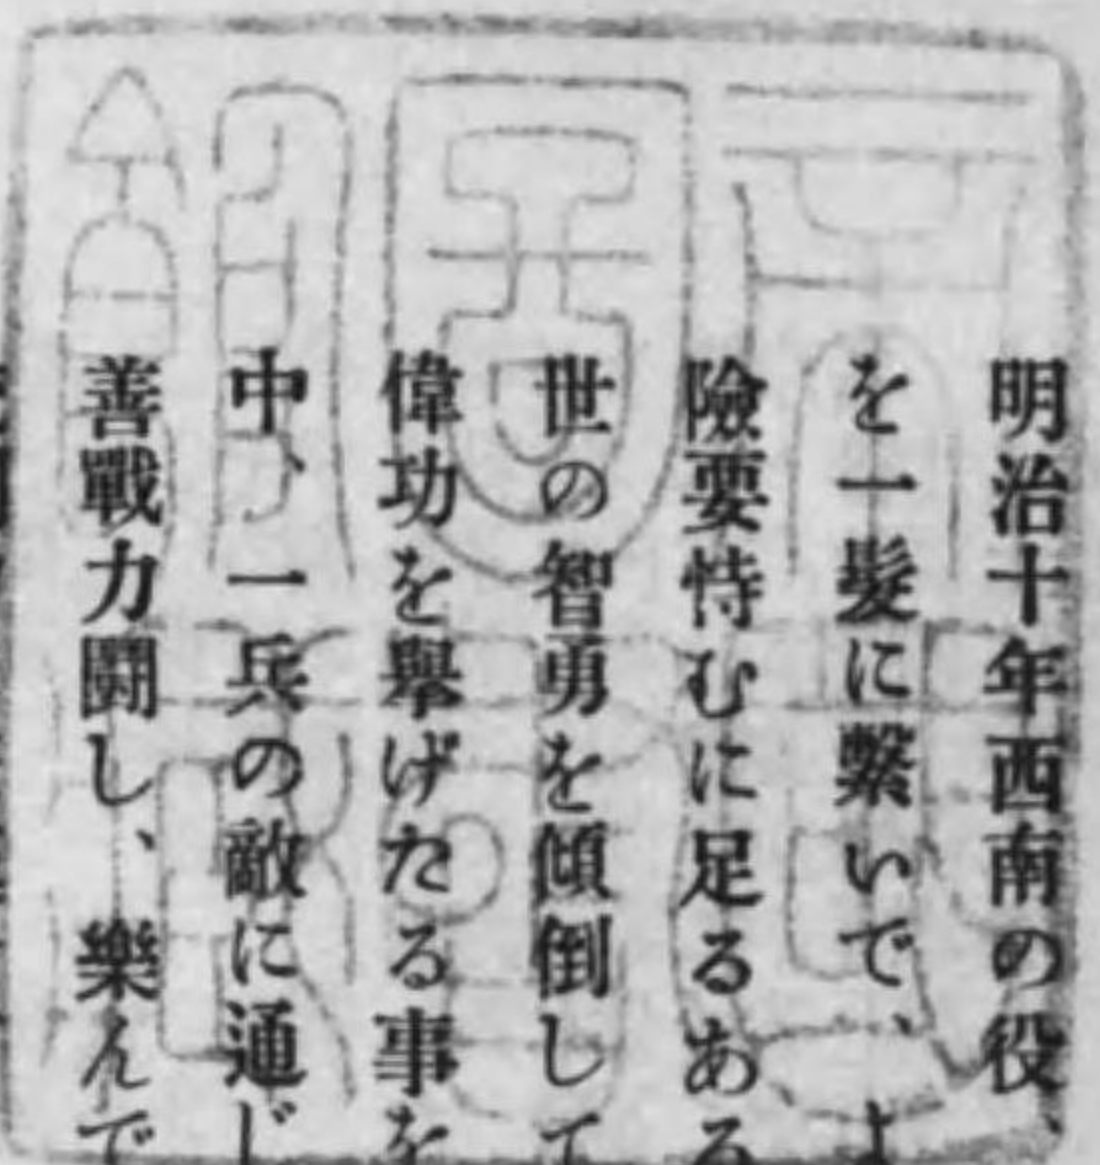 明治十年西南の役、
を一髮に繫いで、よ
險要恃むに足るある
世の智勇を傾倒して
偉功を擧げたる事を
中、一兵の敵に通じ
善戰力鬪し、樂んで